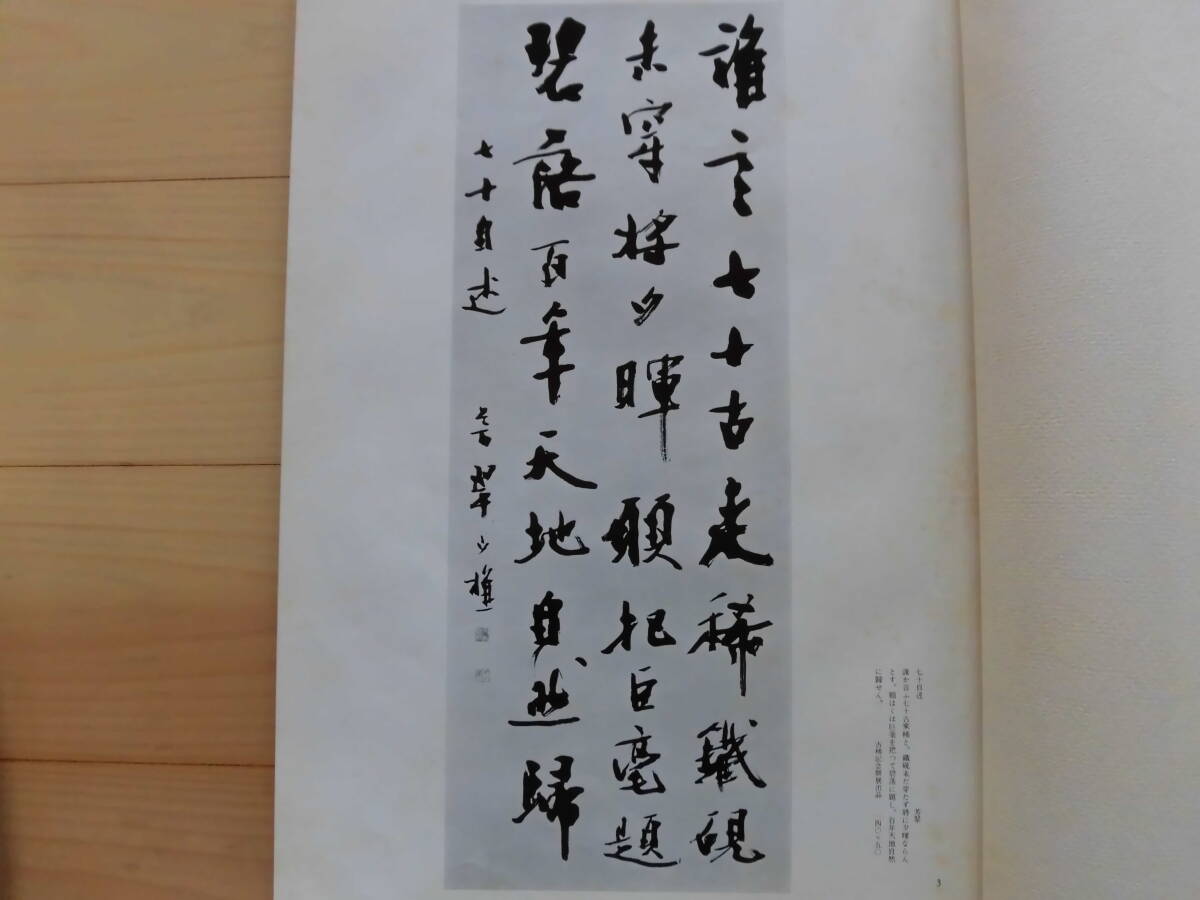 誰言七十古来稀鐵硯
未穿将夕暉願把巨毫題
碧落百年天地自然歸
七十自述 芳翠 樵
七十自述 芳翠
誰か言ふ七十古来稀と。鐵硯未だ穿たず将に夕暉ならん
とす。願はくは巨毫を把つて碧落に題し、百年天地自然
に歸せん。 古稀記念個展出品 四〇・五〇
3